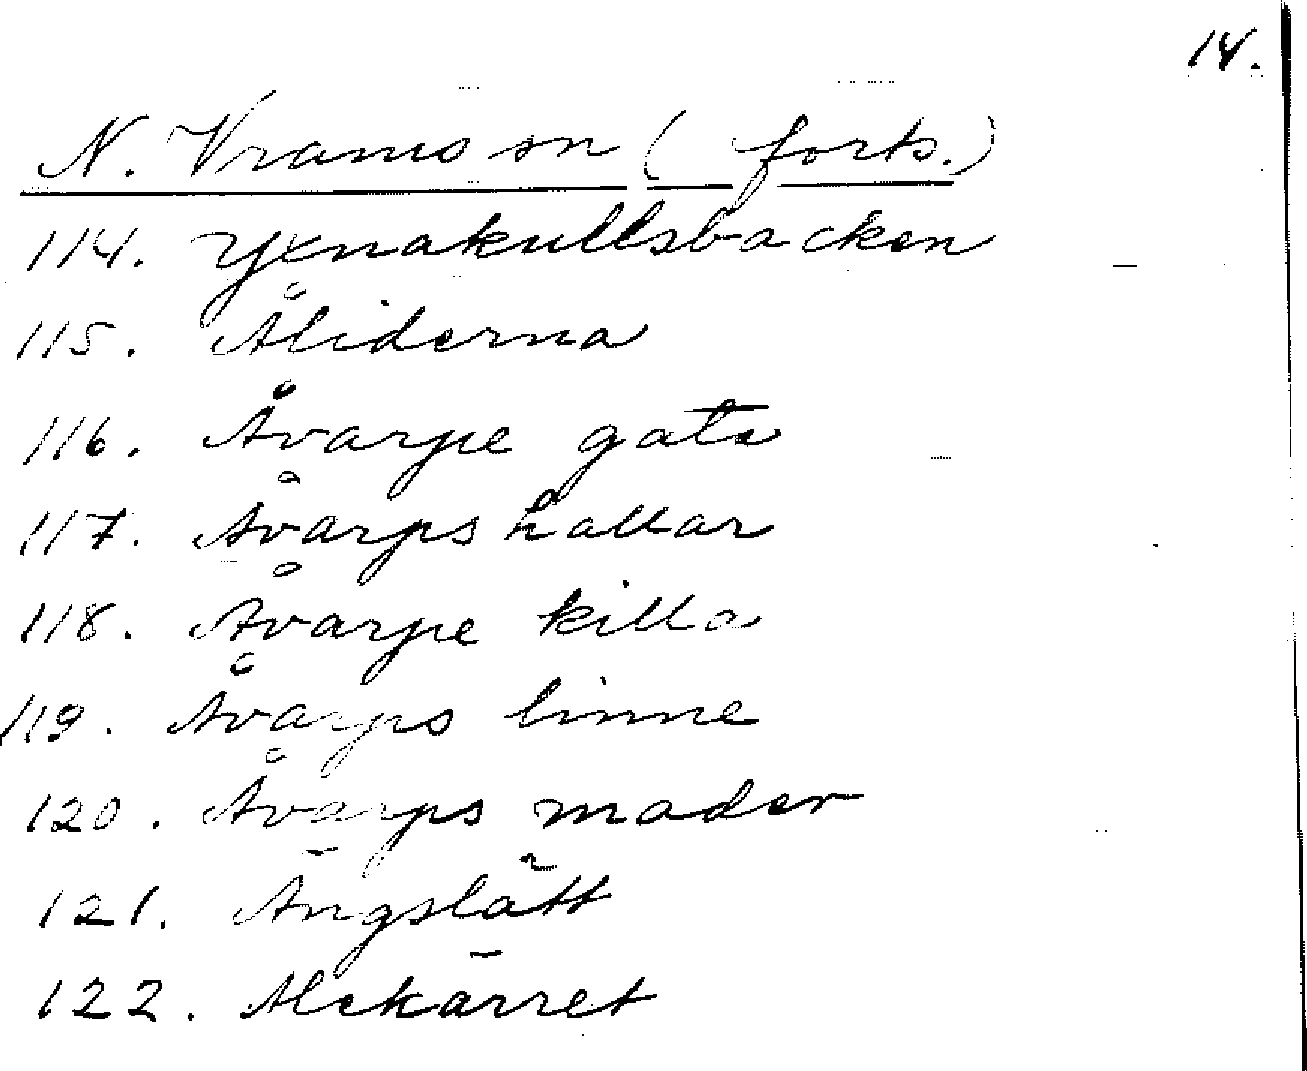 14.
N. Vrams sn (forts.)
114. Yxnakullsbacken
115. Åliderna
116. Åvarpe gata
117. Åvarps hallar
118. Åvarpe killa
119. Åvarps linne
120. Åvarps mader
121. Ängslätt
122. Alekärret